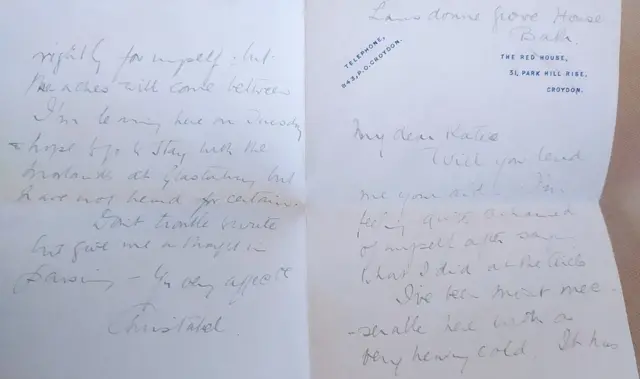 Lansdowne Grove House
Bath.
TELEPHONE,
943, P.O. CROYDON.
THE RED HOUSE,
51, PARK HILL RISE,
CROYDON.
My dear Katie
Will you lend
me your I'm
feeling quite ashamed
of myself after
what I did at the
I've been most mise
-rable here with a
very heavy cold. It has
rightly for myself. but
the aches will come between
I'm leaving here on Tuesday
& hope to go & stay with the
at Glastonbury but
have not heard for certain.
Don't trouble to write
but give me a thought in
passing — Yr very affecte
Christabel.